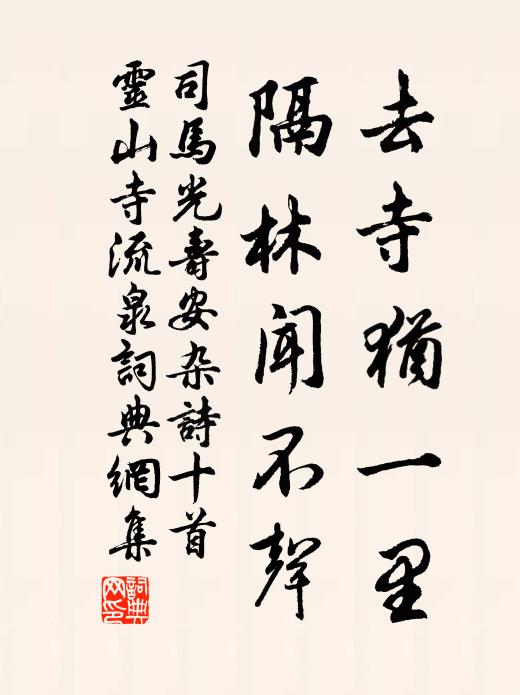 去寺猶一里
隔林聞不聲
司馬光壽安杂詩十首
靈山寺流泉詞典網集
詞典
网印